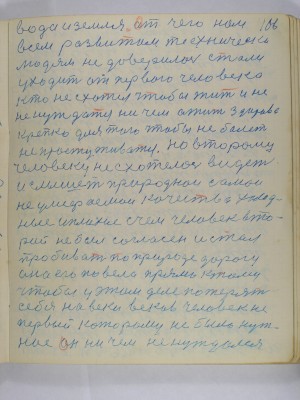 вода и земля. От чего нам 106
всем развитым технически
людям не доверилось стали
уходить от первого человека
кто не схотил чтобы жить и не
нуждатца ни чем а жит здорово
крепко для того чтобы не болеть
не простуживатц. Но второму
человеку не схотелось видет
и слышет природной самой
не умираемой качества холод-
ные и плохие с чем человек вто-
рой не был согласен и стал
пробиват по природе дорогу
она его повела прямо к тому
чтобы у этом деле потерят
себя на веки веков человек не
первый которому не было нуж-
ное он ни чем не нуждался